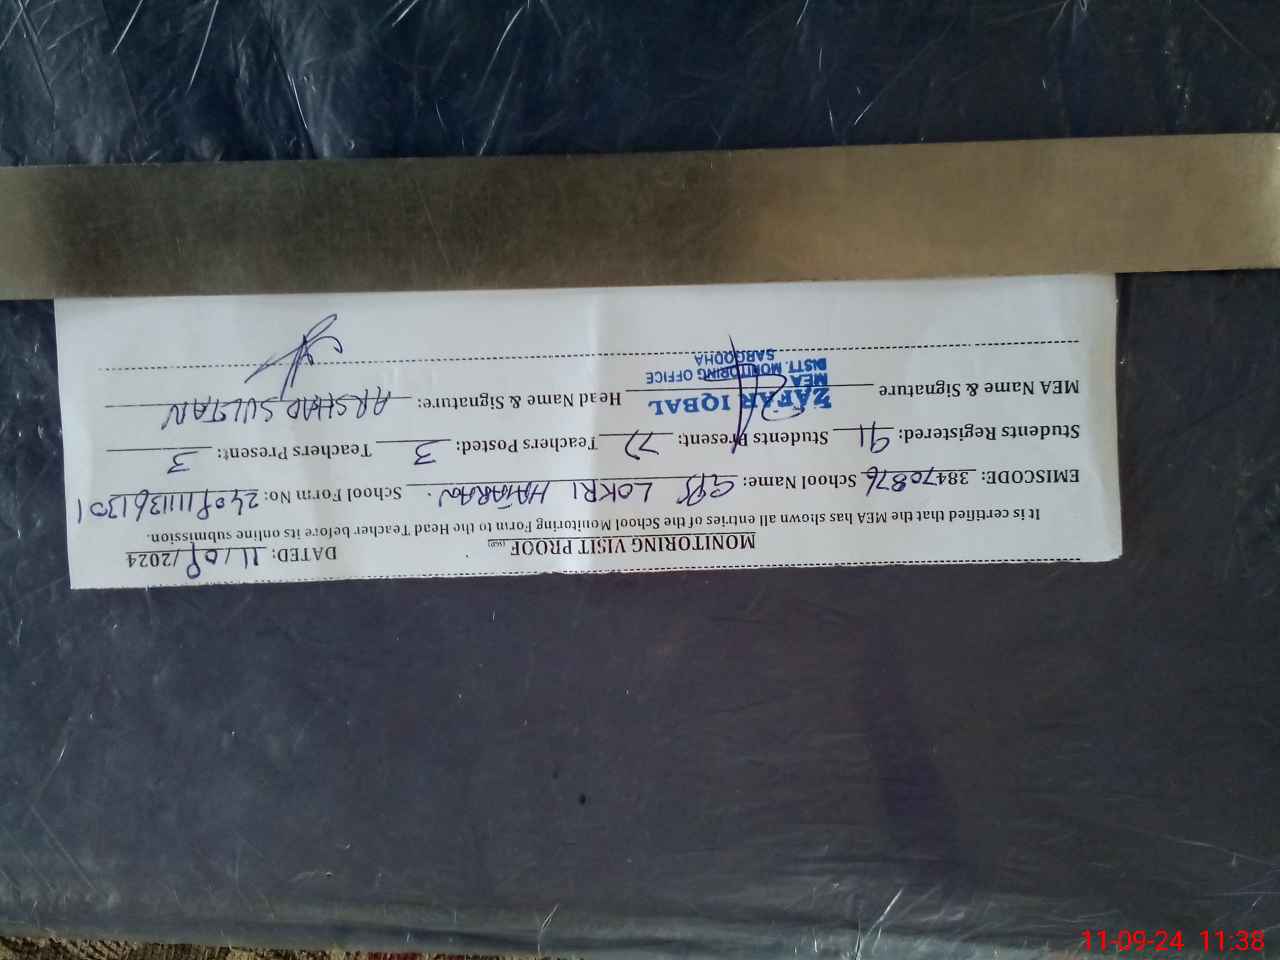 MONITORING VISIT PROOF
DATED: 11/09/2024
It is certified that the MEA has shown all entries of the School Monitoring Form to the Head Teacher before its online submission.
EMISCODE: 38470876 School Name: GPS LOKRI School Form No:
Students Registered: 91 Students Present: Teachers Posted: 3 Teachers Present: 3
MEA Name & Signature ZAFAR IQBAL Head Name & Signature: ARSHAD SULTAN
MEA
DISTT. MONITORING OFFICE
SARGODHA
11-09-24 11:38